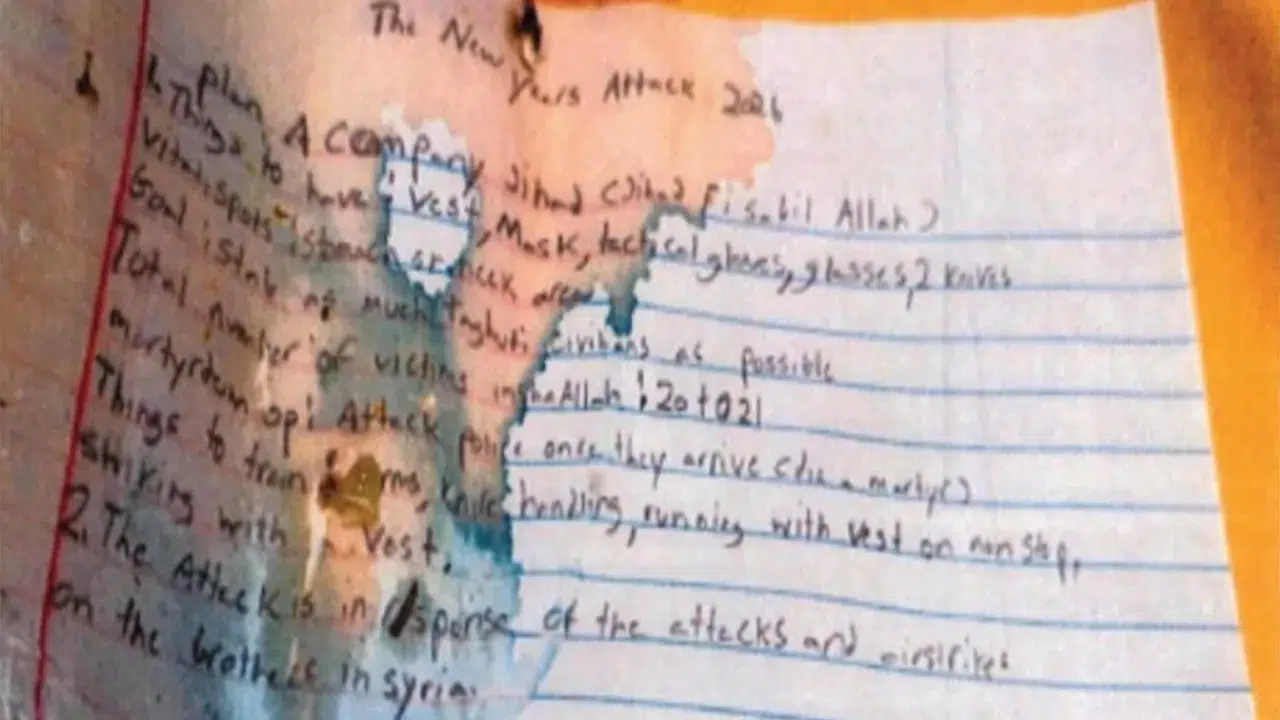 The New Years Attack 2026
1. plan A Company Jihad (Jihad fisabil Allah)
Things to have: Vest, Mask, tactical gloves, glasses, 2 knives
Vital spots: stomach or neck area
Goal: stab as much taghuti civilians as possible
Total number of victims inshaAllah: 20 to 21
martyrdom op: Attack police once they arrive (die a martyr)
Things to train: arms, knife handling, running with vest on non stop,
striking with Vest.
2. The Attack is in response of the attacks and airstrikes
on the brothers in Syria.